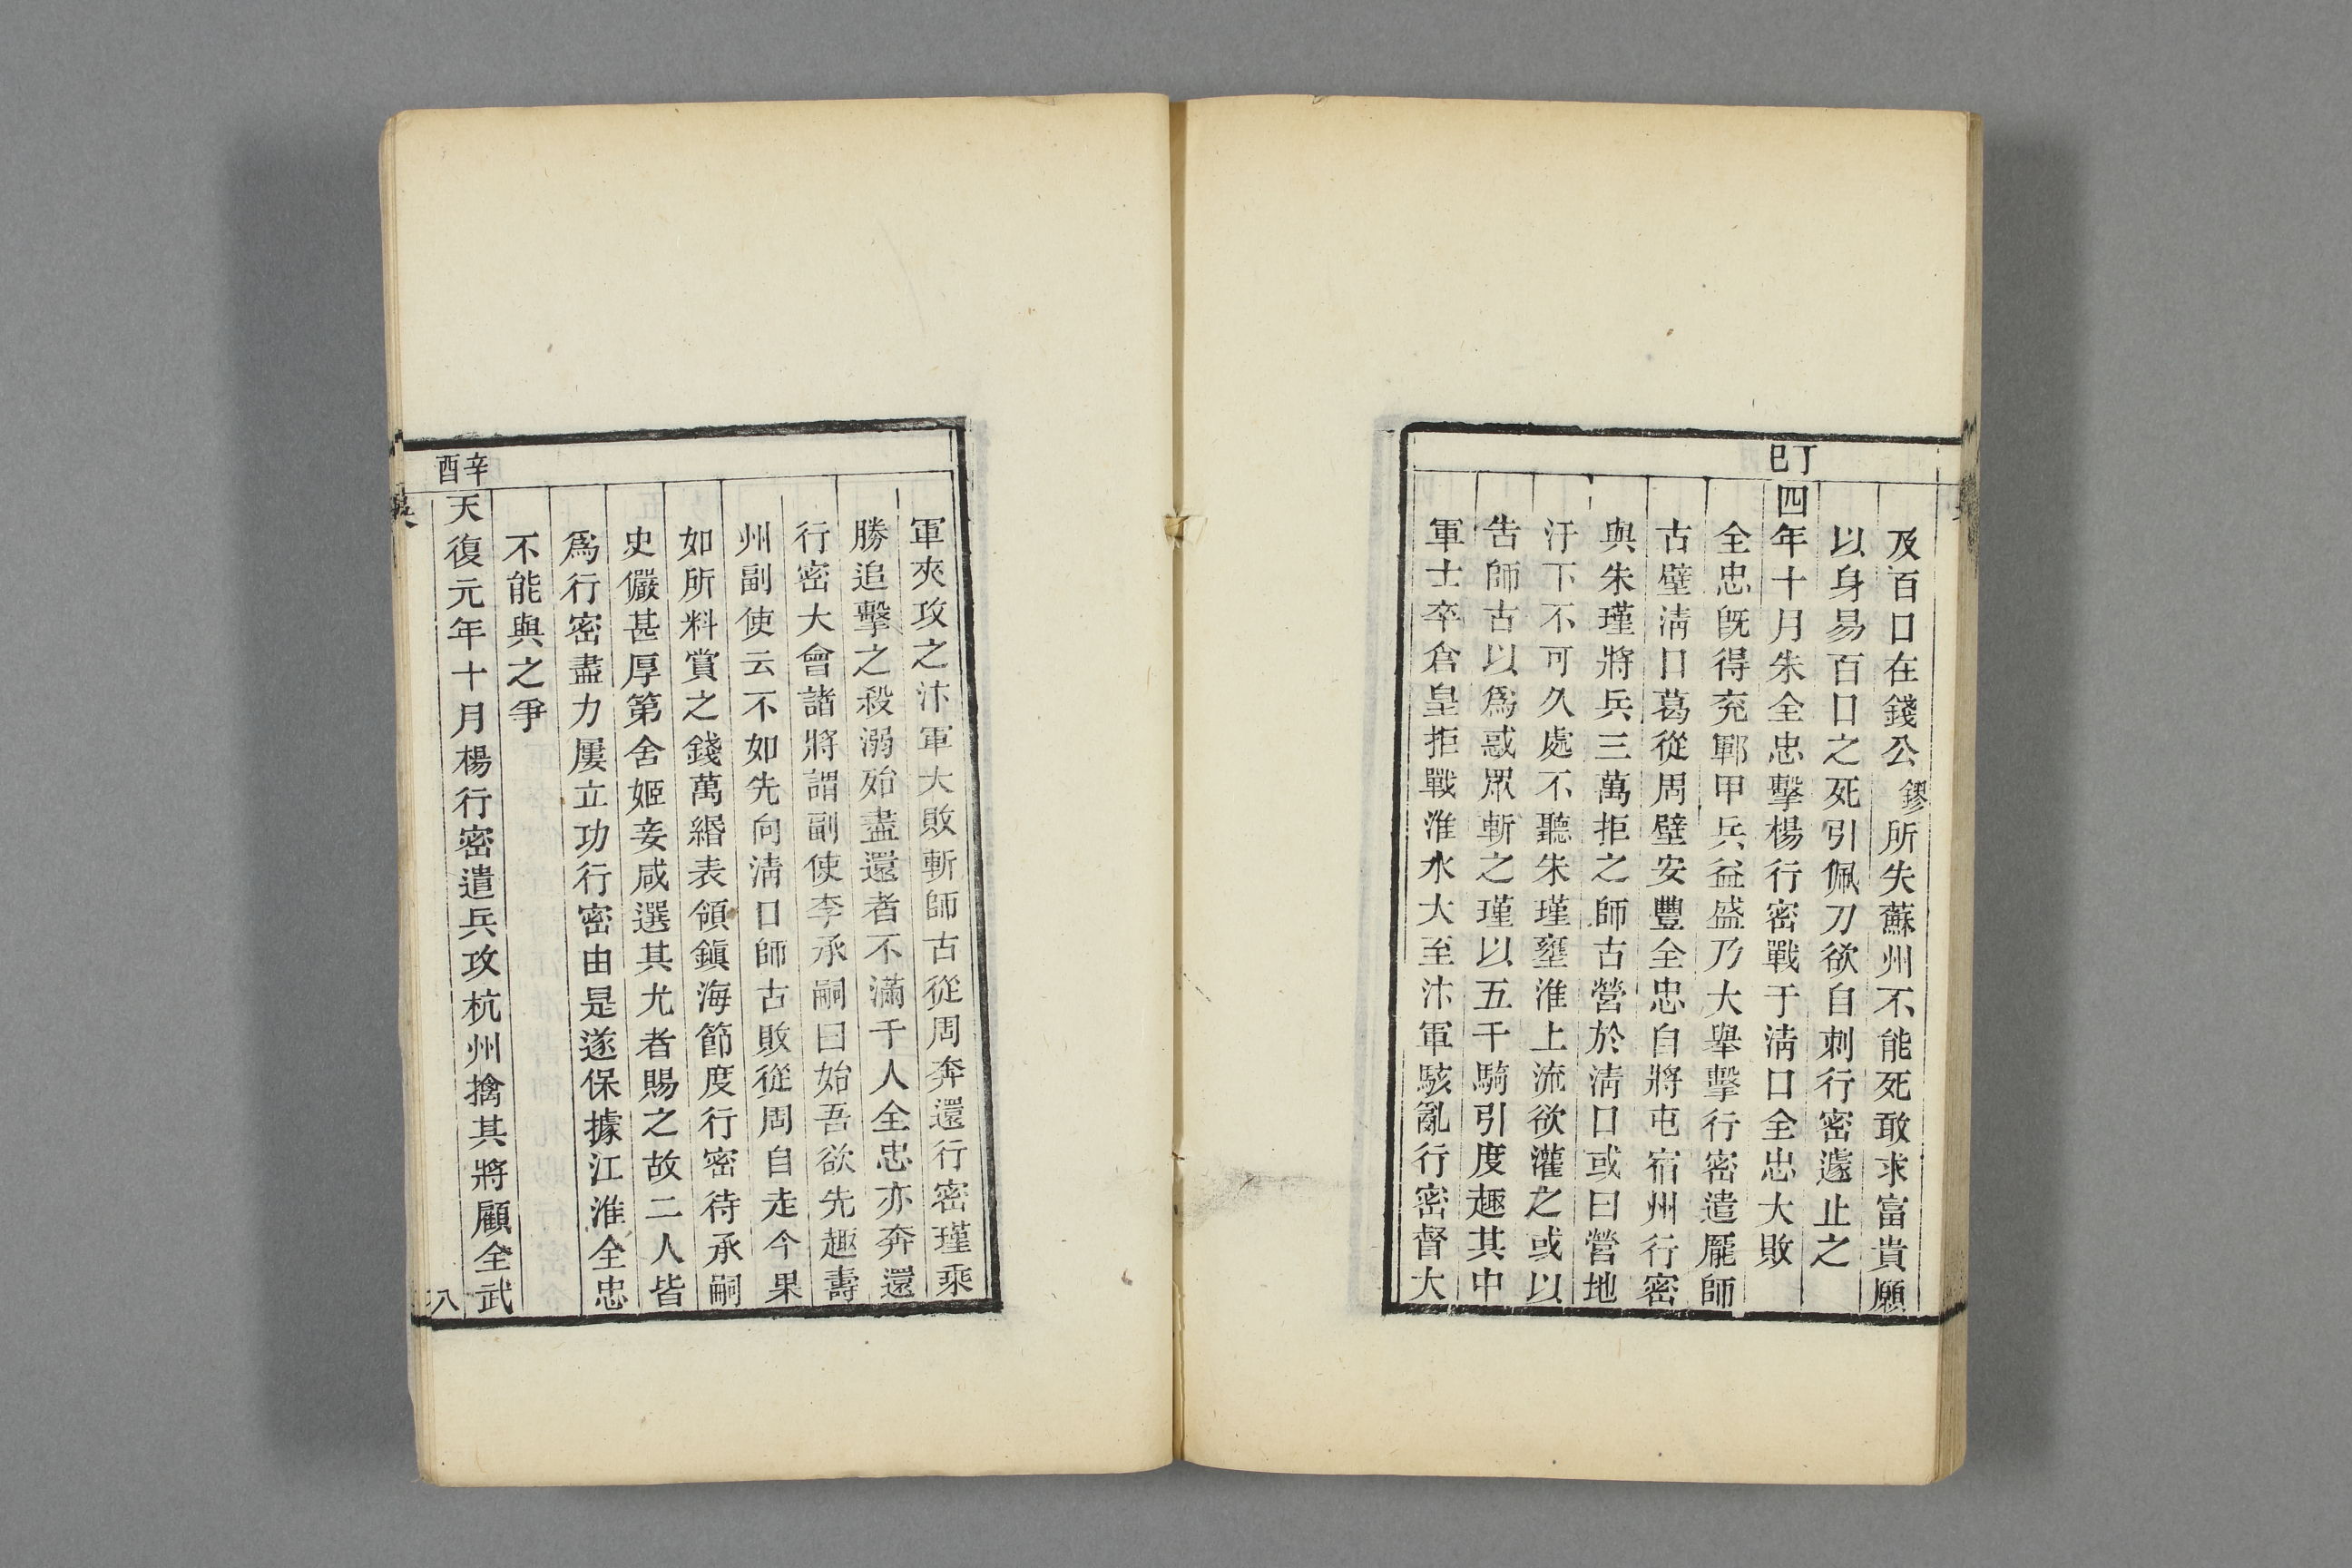 及百口在錢公鏐所失蘇州不能死敢求富貴願
以身易百口之死引佩刀欲自刺行密遽止之
丁巳
四年十月朱全忠擊楊行密戰于淸口全忠大敗
全忠旣得兖鄆甲兵益盛乃大舉擊行密遣龎師
古壁淸口葛從周壁安豐全忠自將屯宿州行密
與朱瑾將兵三萬拒之師古營於淸口或曰營地
汙下不可久處不聽朱瑾壅淮上流欲灌之或以
告師古以爲惑眾斬之瑾以五千騎引度趣其中
軍士卒倉皇拒戰淮水大至汴軍駭亂行密督大
軍夾攻之汴軍大敗斬師古從周奔還行密瑾乘
勝追擊之殺溺殆盡還者不滿千人全忠亦奔還
行密大會諸將謂副使李承嗣曰始吾欲先趣壽
州副使云不如先向淸口師古敗從周自走今果
如所料賞之錢萬緡表領鎭海節度行密待承嗣
史儼甚厚第舍姬妾咸選其尤者賜之故二人皆
爲行密盡力屢立功行密由是遂保據江淮全忠
不能與之爭
辛酉
天復元年十月楊行密遣兵攻杭州擒其將顧全武
八